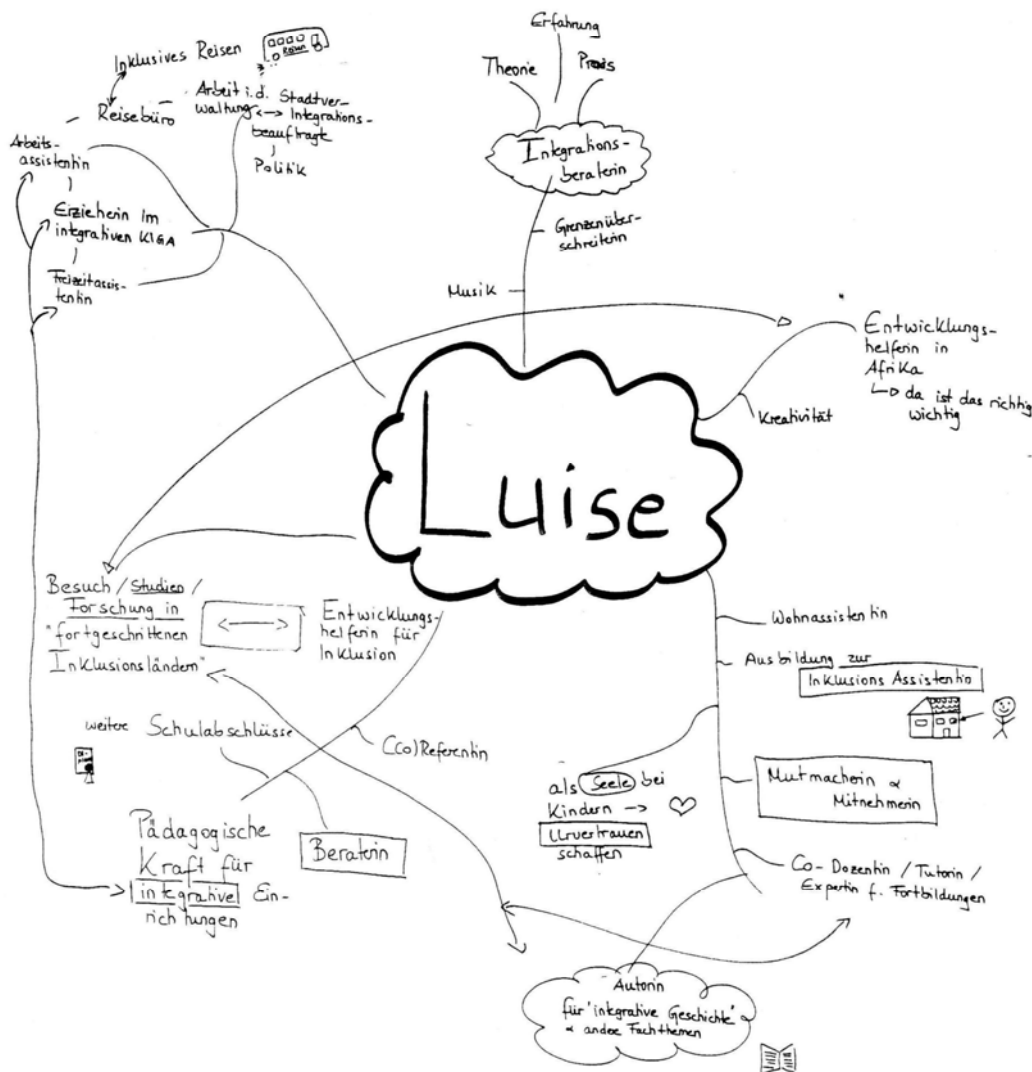 Inklusives Reisen
REISEN
Reisebüro
Arbeit i.d. Stadtver-
waltung
Integrations-
beauftragte
Politik
Arbeits-
assistentin
Erzieherin im
integrativen KIGA
Freizeitassis-
tentin
Erfahrung
Theorie
Praxis
Integrations-
beraterin
Grenzenüber-
schreiterin
Musik
Entwicklungs-
helferin in
Afrika
da ist das richtig
wichtig
Kreativität
Luise
Besuch / Studien /
Forschung in
"fortgeschrittenen
Inklusionsländern"
Entwicklungs-
helferin für
Inklusion
weitere Schulabschlüsse
(Co)Referentin
Pädagogische
Kraft für
integrative Ein-
richtungen
Beraterin
Wohnassistentin
Ausbildung zur
Inklusions Assistentin
als Seele bei
Kindern
Urvertrauen
schaffen
Mutmacherin &
Mitnehmerin
Co-Dozentin / Tutorin /
Expertin f. Fortbildungen
Autorin
für "integrative Geschichte" &
& andere Fachthemen